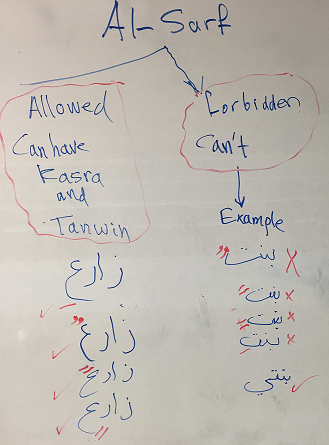 Al-Sarf
Allowed
Can have
Kasra
and
Tanwin
زارع
زارعٌ
زارعً
زارعٍ
Forbidden
Can't
Example
بنتٌ X
بنتً x
بنتٍ x
بنت x
بنتي